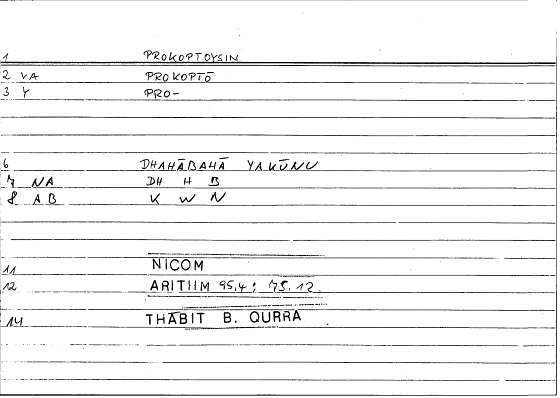 1 PROKOPTOYSIN
2 VA PROKOPTŌ
3 Y PRO-
6 DHAHĀBAHĀ YAKŪNU
7 NA DH H B
8 AB K W N
11 NICOM
12 ARITHM 95,4; 75.12.
14 THĀBIT B. QURRA